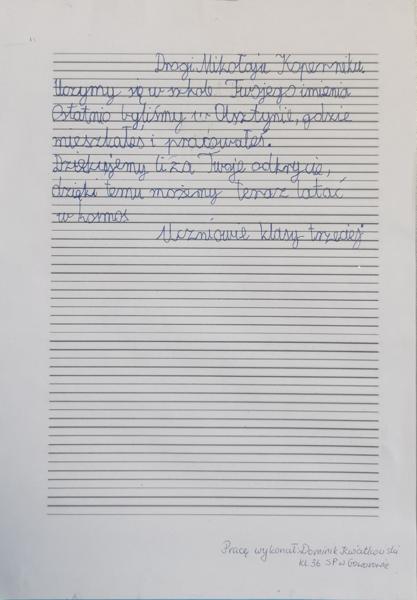 Drogi Mikołaju Koperniku.
Uczymy się w szkole Twojego imienia
Ostatnio byliśmy w Olsztynie, gdzie
mieszkałeś i pracowałeś.
Dziękujemy Ci za Twoje odkrycie,
dzięki temu możemy teraz latać
w kosmos
Uczniowie klasy trzeciej
Pracę wykonał Dominik Kwiatkowski
kl. 3b SP w Goworowie